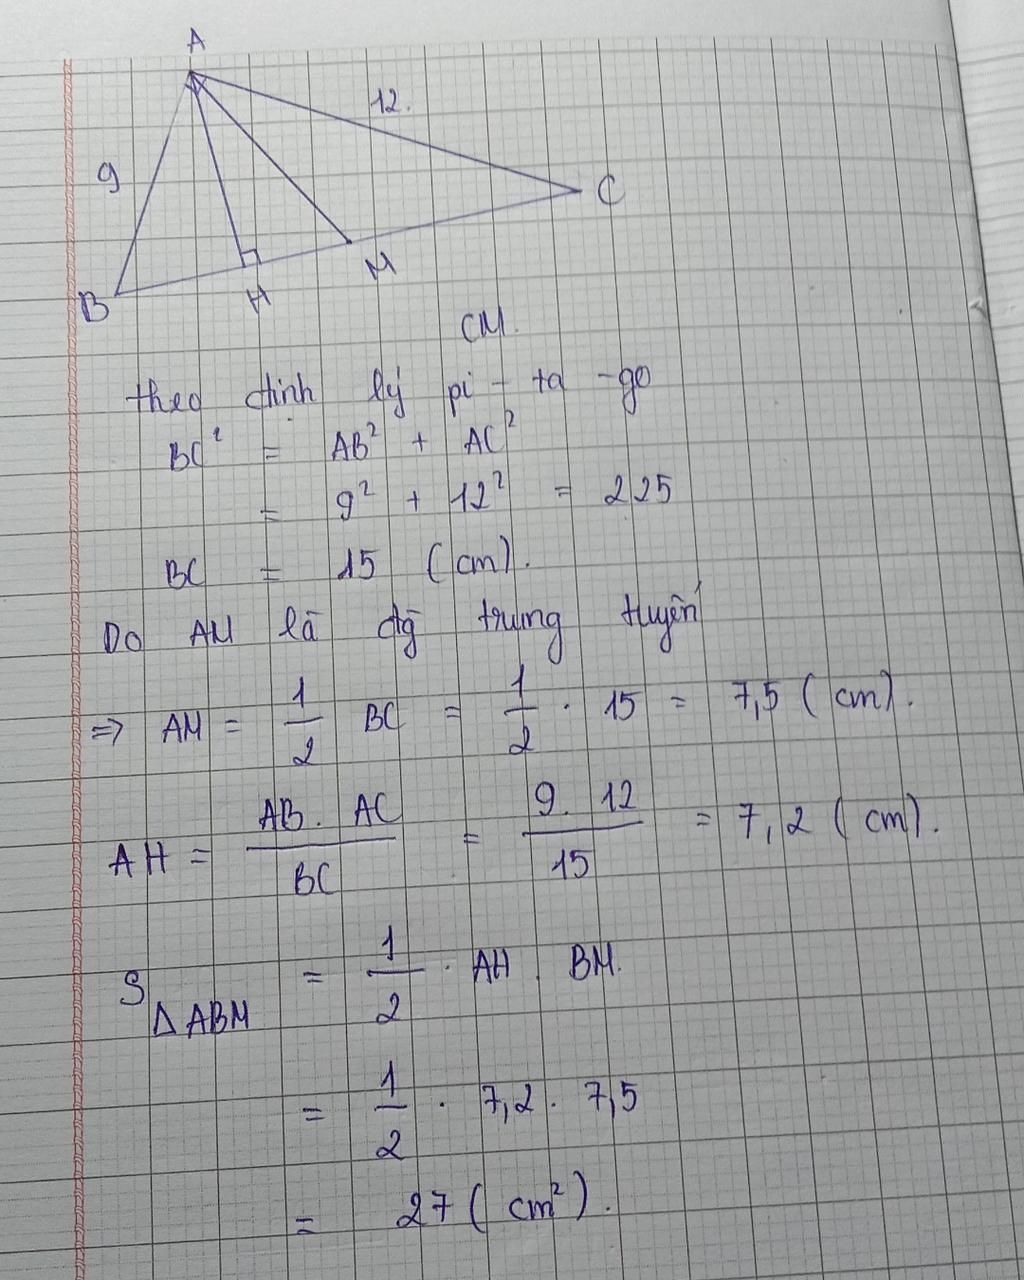 A
12.
9
C
M
B
H
CM.
theo định lý pi - ta - go
BC² = AB² + AC²
= 9² + 12² = 225
BC = 15 (cm).
Do AM là đg trung tuyến
=> AM = 1/2 BC = 1/2 . 15 = 7,5 (cm).
AH = AB. AC / BC = 9. 12 / 15 = 7,2 (cm).
S Δ ABM = 1/2 . AH . BM.
= 1/2 . 7,2 . 7,5
= 27 (cm²).